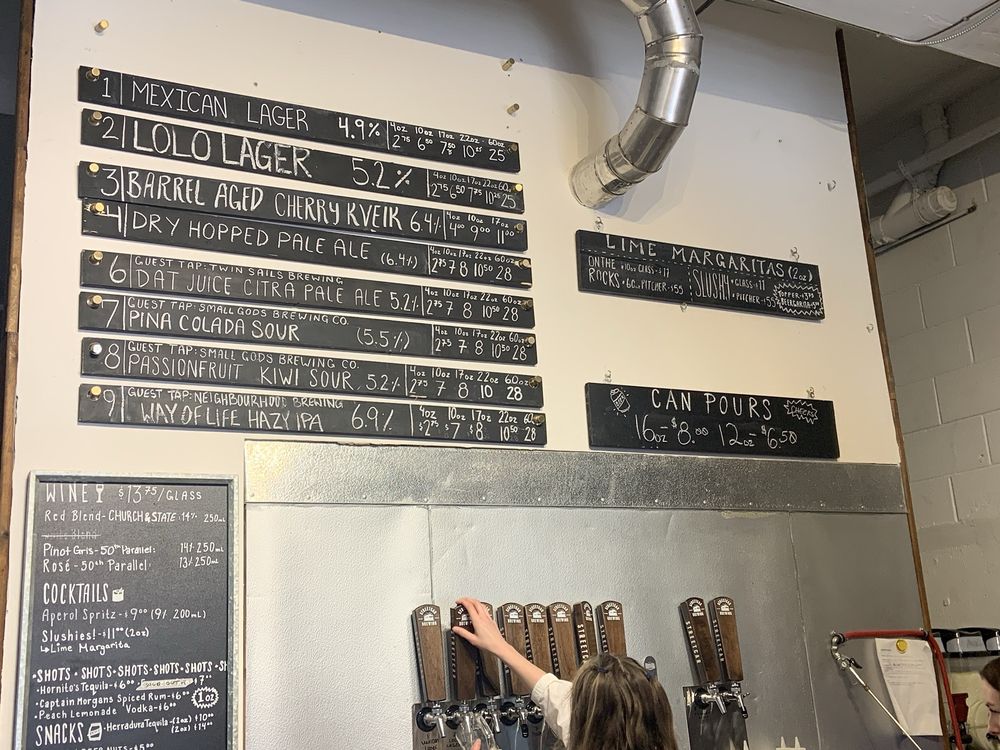 1 MEXICAN LAGER 4.9% 4oz 10oz 17oz 22oz 60oz
2 LOLO LAGER 5.2% 4oz 10oz 17oz 22oz 60oz
2.75 6.50 7.75 10.25 25
3 BARREL AGED CHERRY KVEIK 6.4% 4oz 10oz 17oz
4.00 9.00 11.00
4 DRY HOPPED PALE ALE (6.4%) 4oz 10oz 17oz 22oz 60oz
2.75 7 8 10.50 28
6 GUEST TAP: TWIN SAILS BREWING
DAT JUICE CITRA PALE ALE 5.2% 4oz 10oz 17oz 22oz 60oz
2.75 7 8 10.50 28
7 GUEST TAP: SMALL GODS BREWING CO.
PINA COLADA SOUR (5.5%) 4oz 10oz 17oz 22oz 60oz
2.75 7 8 10.50 28
8 GUEST TAP: SMALL GODS BREWING CO.
PASSIONFRUIT KIWI SOUR 5.2% 4oz 10oz 17oz 22oz 60oz
2.75 7 8 10 28
9 GUEST TAP: NEIGHBOURHOOD BREWING
WAY OF LIFE HAZY IPA 6.9% 4oz 10oz 17oz 22oz 60oz
$2.75 $7 $8 10.50 28
LIME MARGARITAS (2oz)
ON THE ROCKS • 10oz GLASS-$17
• 60oz PITCHER-$55
SLUSHY • GLASS-$11
• PITCHER-$55
CAN POURS CHEERS
16oz-$8.00 12oz-$6.50
WINE $13.75/GLASS
Red Blend-CHURCH & STATE 14% 250mL
Pinot Gris-50th Parallel: 14% 250mL
Rosé-50th Parallel: 13% 250mL
COCKTAILS
Aperol Spritz-$9.00 (9% 200mL)
Slushies!-$11.00 (2oz)
↳Lime Margarita
•SHOTS•SHOTS•SHOTS•SHOTS•SH
•Hornito's Tequila-$6.00
•Captain Morgans Spiced Rum-$6.00
•Peach Lemonade Vodka-$6.00
1oz
SNACKS •Herradura Tequila-(1oz) $10.00
(2oz) $14.00